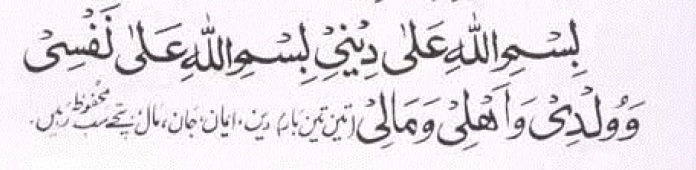 بِسْمِ اللهِ عَلٰی دِیْنِیْ بِسْمِ اللهِ عَلٰی نَفْسِیْ
وَوُلْدِیْ وَاَهْلِیْ وَمَالِیْ (تین تین بار) دین، ایمان، جان، مال، بچے سب محفوظ رہیں۔